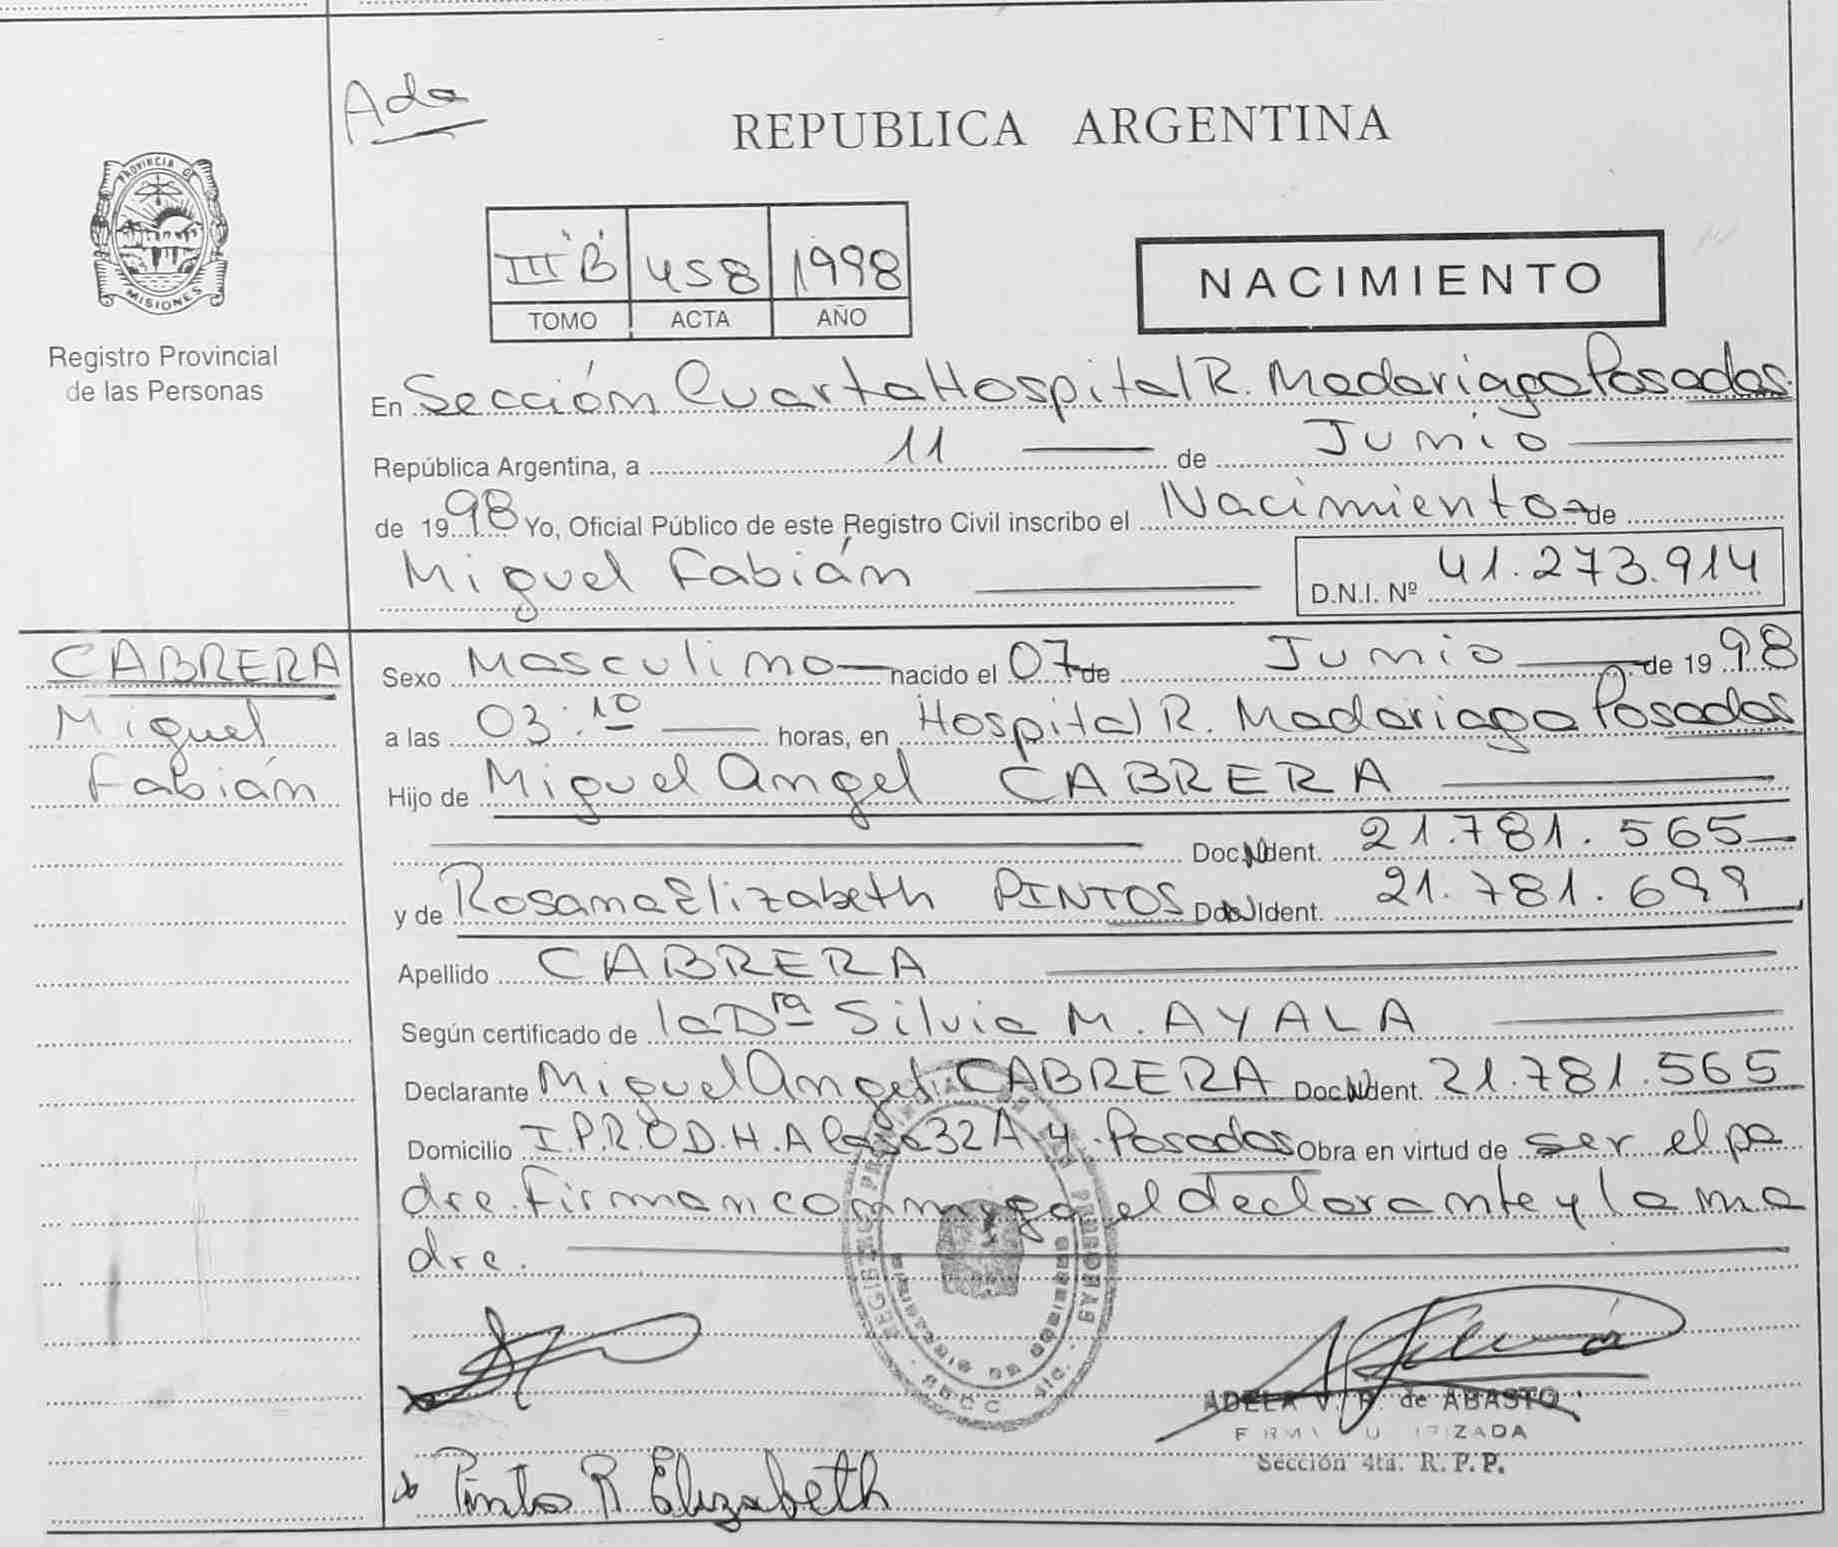 Ada
REPUBLICA ARGENTINA
PROVINCIA
MISIONES
Registro Provincial
de las Personas
III "B" 458 1998
TOMO ACTA AÑO
NACIMIENTO
En Sección Cuarta Hospital R. Madariaga Posadas
República Argentina, a 11 de Junio
de 1998 Yo, Oficial Público de este Registro Civil inscribo el Nacimiento de
Miguel Fabián
D.N.I. Nº 41.273.914
CABRERA
Miguel
Fabián
Sexo Masculino nacido el 07 de Junio de 1998
a las 03:10 horas, en Hospital R. Madariaga Posadas
Hijo de Miguel Angel CABRERA
Doc. Ident. 21.781.565
y de Rosana Elizabeth PINTOS Doc. Ident. 21.781.699
Apellido CABRERA
Según certificado de la Dra Silvia M. AYALA
Declarante Miguel Angel CABRERA Doc. Ident. 21.781.565
Domicilio I.PRO.D.H.A Casa 32 A 4. Posadas Obra en virtud de ser el pa
dre. Firman conmigo el declarante y la ma
dre.
ADELA V. R. de ABASTO
Sección 4ta. R. P. P.
Pintos R Elizabeth